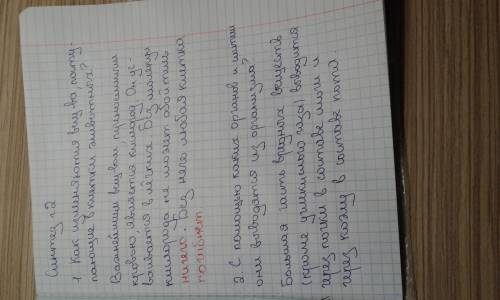 Синтез
1 Как изменяются вещ-ва, посту-
пающие в клетки животных?
Важнейшим вещ-вом, приносимым
кровью, является кислород. Он ус-
ваивается в лёгких. Без
кислорода не может обойтись
ничего. Без него любая клетка
погибнет.
2. С помощью каких органов и систем
они выводятся из организма?
Большая часть вредных веществ
(кроме углекислого газа) выводится
через почки в составе мочи и
через кожу в составе пота.